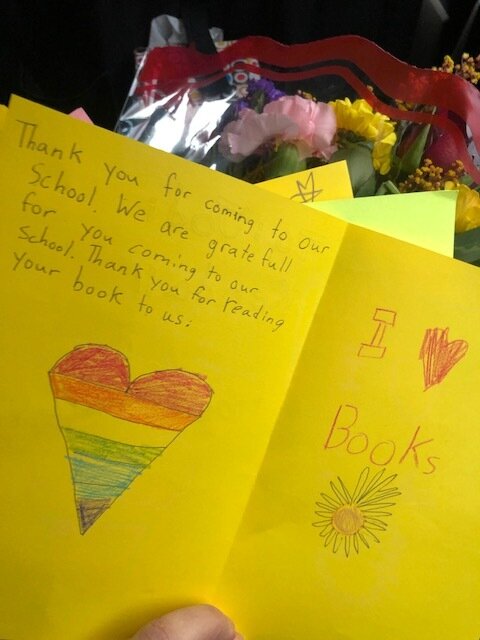 Thank you for coming to our
School. We are gratefull
for you coming to our
school. Thank you for reading
your book to us.
I
Books